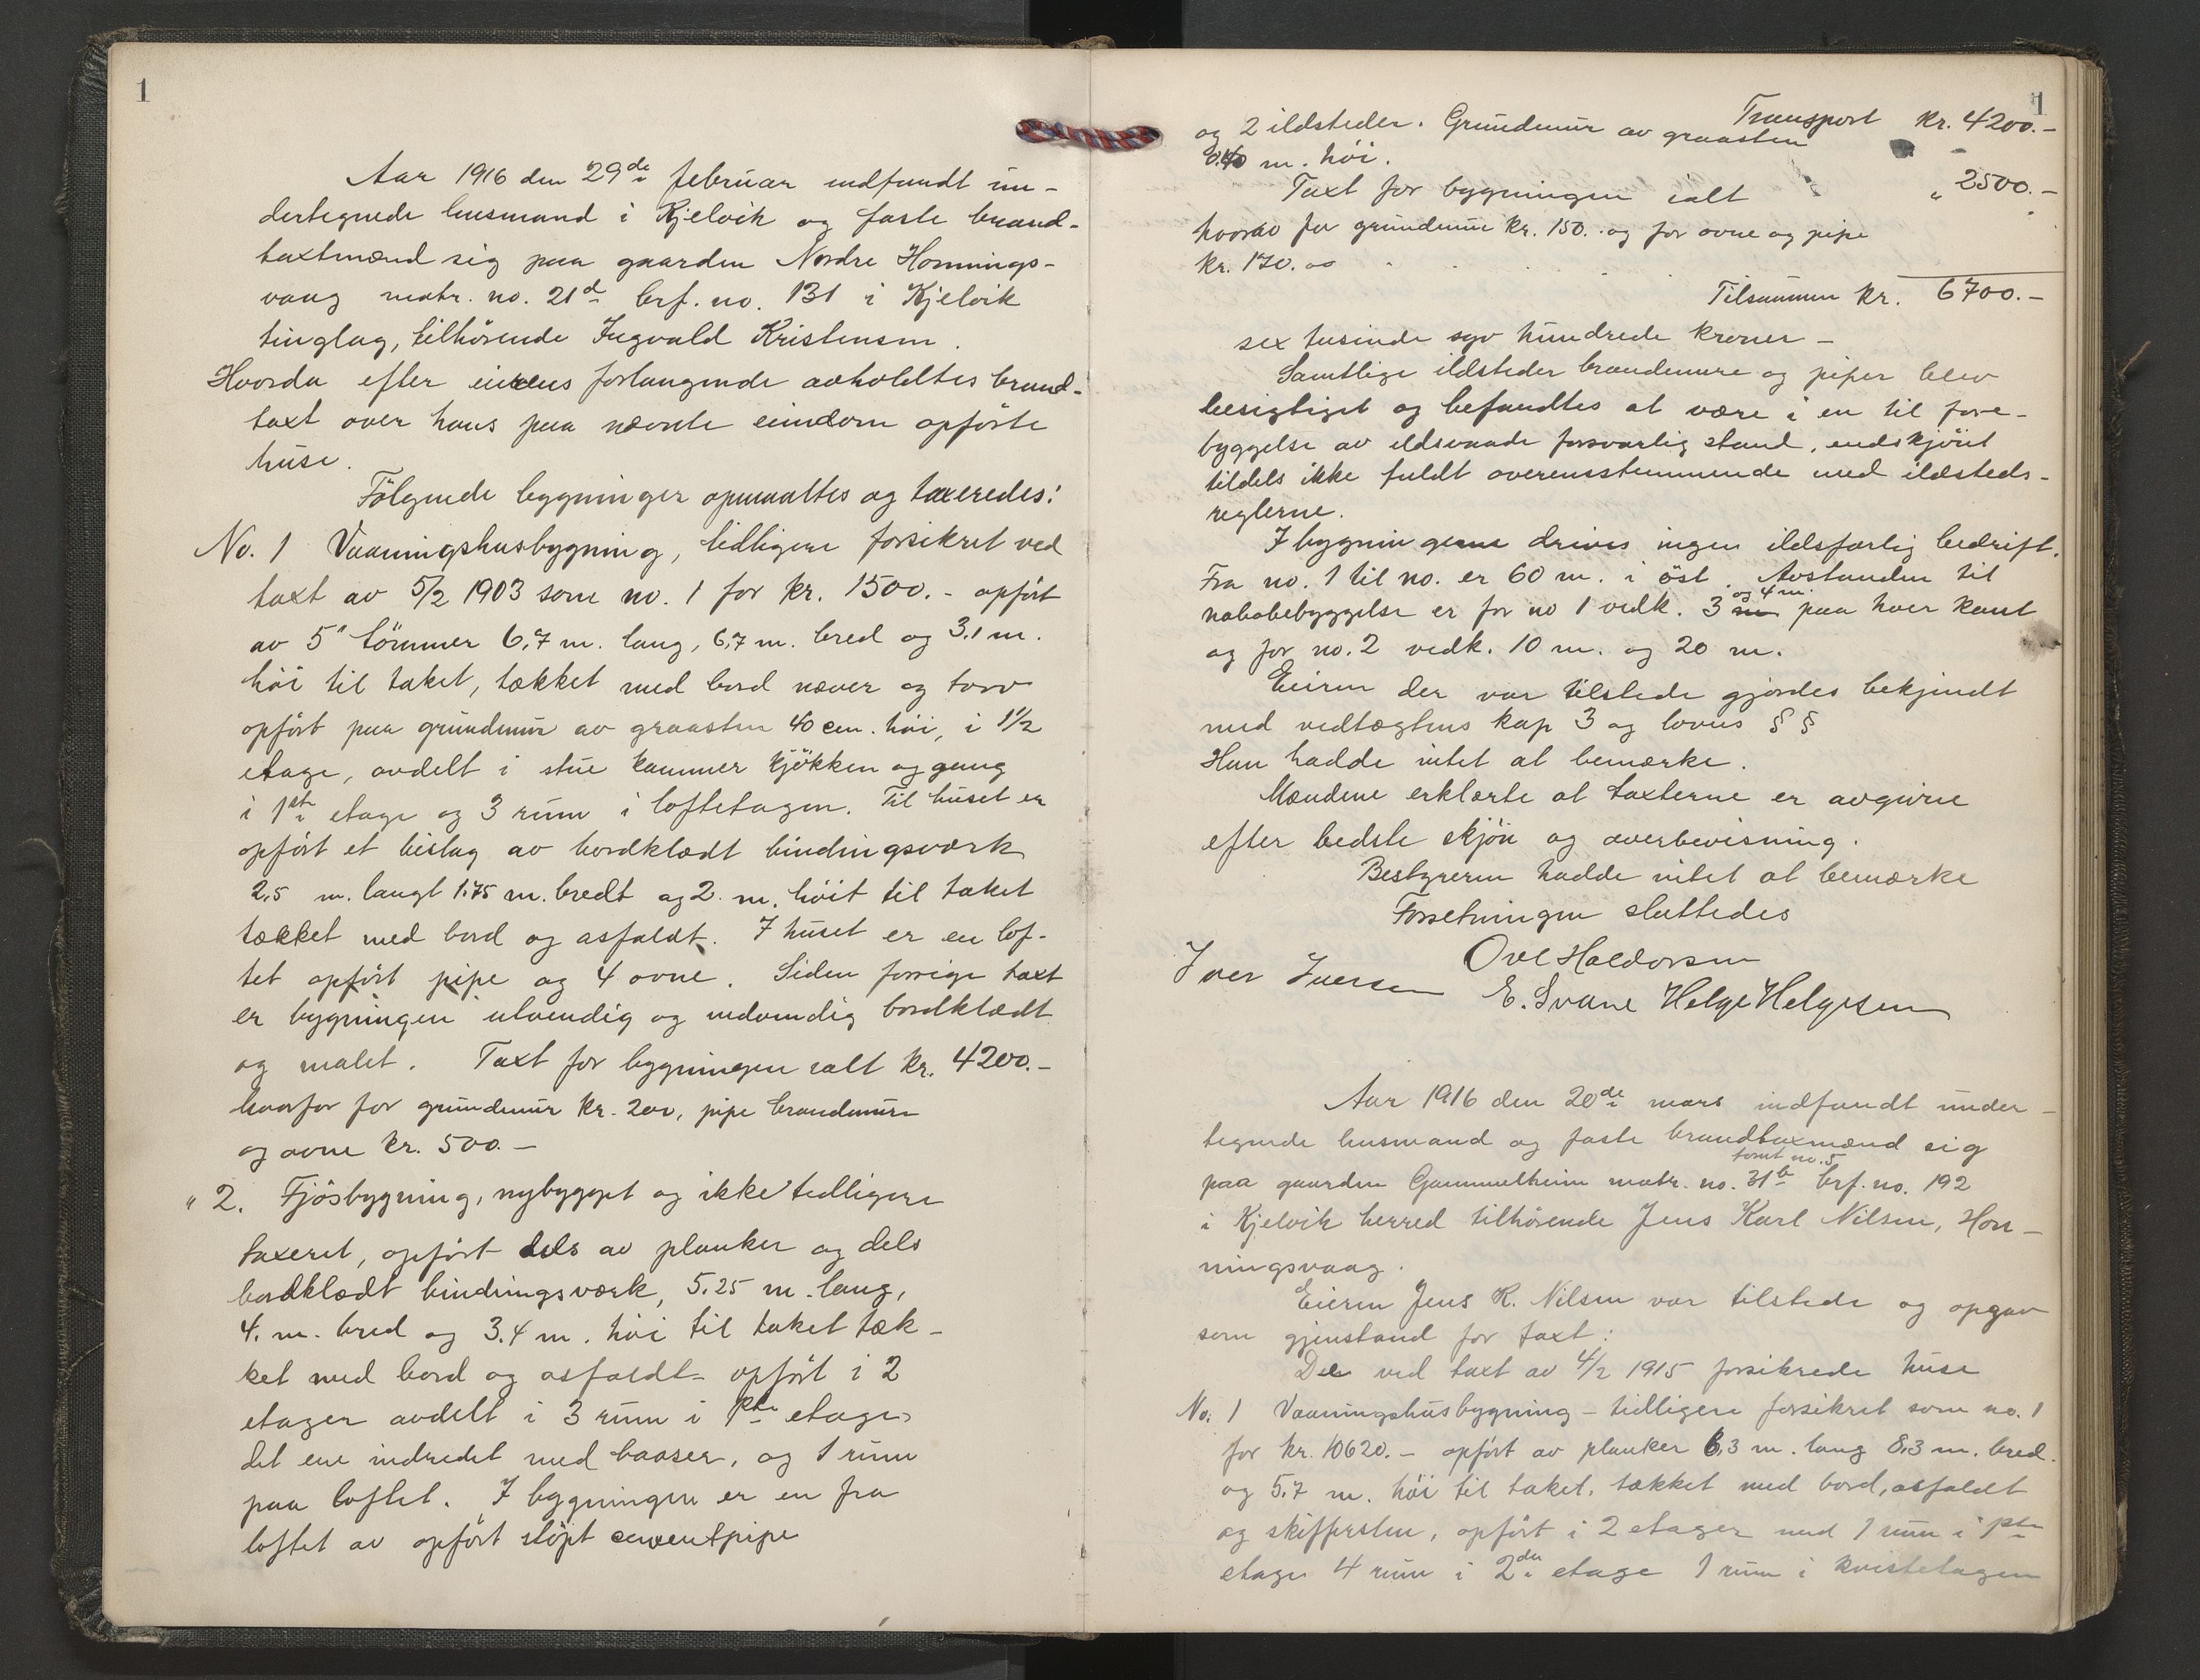 1
Aar 1916 den 29de februar indfandt un-
dertegnede lensmand i Kjelvik og faste brand-
taxtmænd sig paa gaarden Nordre Honnings-
vaag matr. no. 21d brf. no. 131 i Kjelvik
tinglag, tilhörende Ingvald Kristensen.
Hvorda efter eierens forlangende avholdtes brand-
taxt over hans paa nævnte eiendom opförte
huse.
Fölgende bygninger opmaaltes og taxeredes:
No. 1 Vaaningshusbygning, tidligere forsikret ved
taxt av 5/2 1903 som no. 1 for kr. 1500.- opfört
av 5" tömmer 6,7 m. lang, 6,7 m. bred og 3,1 m.
höi til taket, tækket med bord næver og torv
opfört paa grundmur av graasten 40 cm. höi, i 1 1/2
etage, avdelt i stue kammer kjökken og gang
i 1ste etage og 3 rum i loftetagen. Til huset er
opfört et bislag av bordklædt bindingsværk
2,5 m. langt 1.75 m. bredt og 2. m. höit til taket
tækket med bord og asfaldt. I huset er en lof-
tet opfört pipe og 4 ovne. Siden forrige taxt
er bygningen utvendig og indvendig bordklædt
og malet. Taxt for bygningen ialt kr. 4200.-
hvorfor for grundmur kr. 200, pipe brandmure
og ovne kr. 500.-
" 2. Fjösbygning, nybygget og ikke tidligere
taxeret, opfört dels av planker og dels
bordklædt bindingsværk, 5.25 m. lang,
4. m. bred og 3.4 m. höi til taket tæk-
ket med bord og asfaldt- opfört i 2
etager avdelt i 3 rum i 1ste etage,
det ene indredet med baaser, og 1 rum
paa loftet. I bygningen er en fra
loftet av opfört stöpt cementpipe
1
Transport kr. 4200.-
og 2 ildsteder. Grundmur av graasten
0.40 m. höi.
Taxt for bygningen ialt " 2500.-
hvorav for grundmur kr. 150. og for ovne og pipe
kr. 170.00
Tilsammen kr. 6700.-
sex tusinde syv hundrede kroner -
Samtlige ildsteder brandmure og piper blev
besigtiget og befandtes at være i en til fore-
byggelse av ildsvaade forsvarlig stand, endskjönt
tildels ikke fuldt overensstemmende med ildsteds-
reglerne.
I bygningerne drives ingen ildsfarlig bedrift.
Fra no. 1 til no. er 60 m. i öst. Avstanden til
og 4 m.
nabobebyggelse er for no 1 vedk. 3 m paa hver kant
og for no. 2 vedk. 10 m. og 20 m.
Eieren der var tilstede gjordes bekjendt
med vedtægtens kap 3 og lovens § §
Han hadde intet at bemærke.
Mændene erklærte at taxterne er avgivne
efter bedste skjön og overbevisning.
Bestyreren hadde intet at bemærke
Forretningen sluttedes
Ove Haldorsen
Iver Iversen E. Svane Helge Helgesen
Aar 1916 den 20de mars indfandt under-
tegnede lensmand og faste brandtaxmænd sig
tomt no. 5
paa gaarden Gammelheim matr. no. 31b brf. no. 192
i Kjelvik herred tilhörende Jens Karl Nilsen, Hon-
ningsvaag.
Eieren Jens K. Nilsen var tilstede og opgav
som gjenstand for taxt:
De ved taxt av 4/2 1915 forsikrede huse
No. 1 Vaaningshusbygning - tidligere forsikret som no. 1
for kr. 10620.- opfört av planker 6,3 m. lang 8,3 m. bred
og 5,7 m. höi til taket, tækket med bord, asfaldt
og skiffersten, opfört i 2 etager med 1 rum i 1ste
etage 4 rum i 2den etage 1 rum i kvistetagen